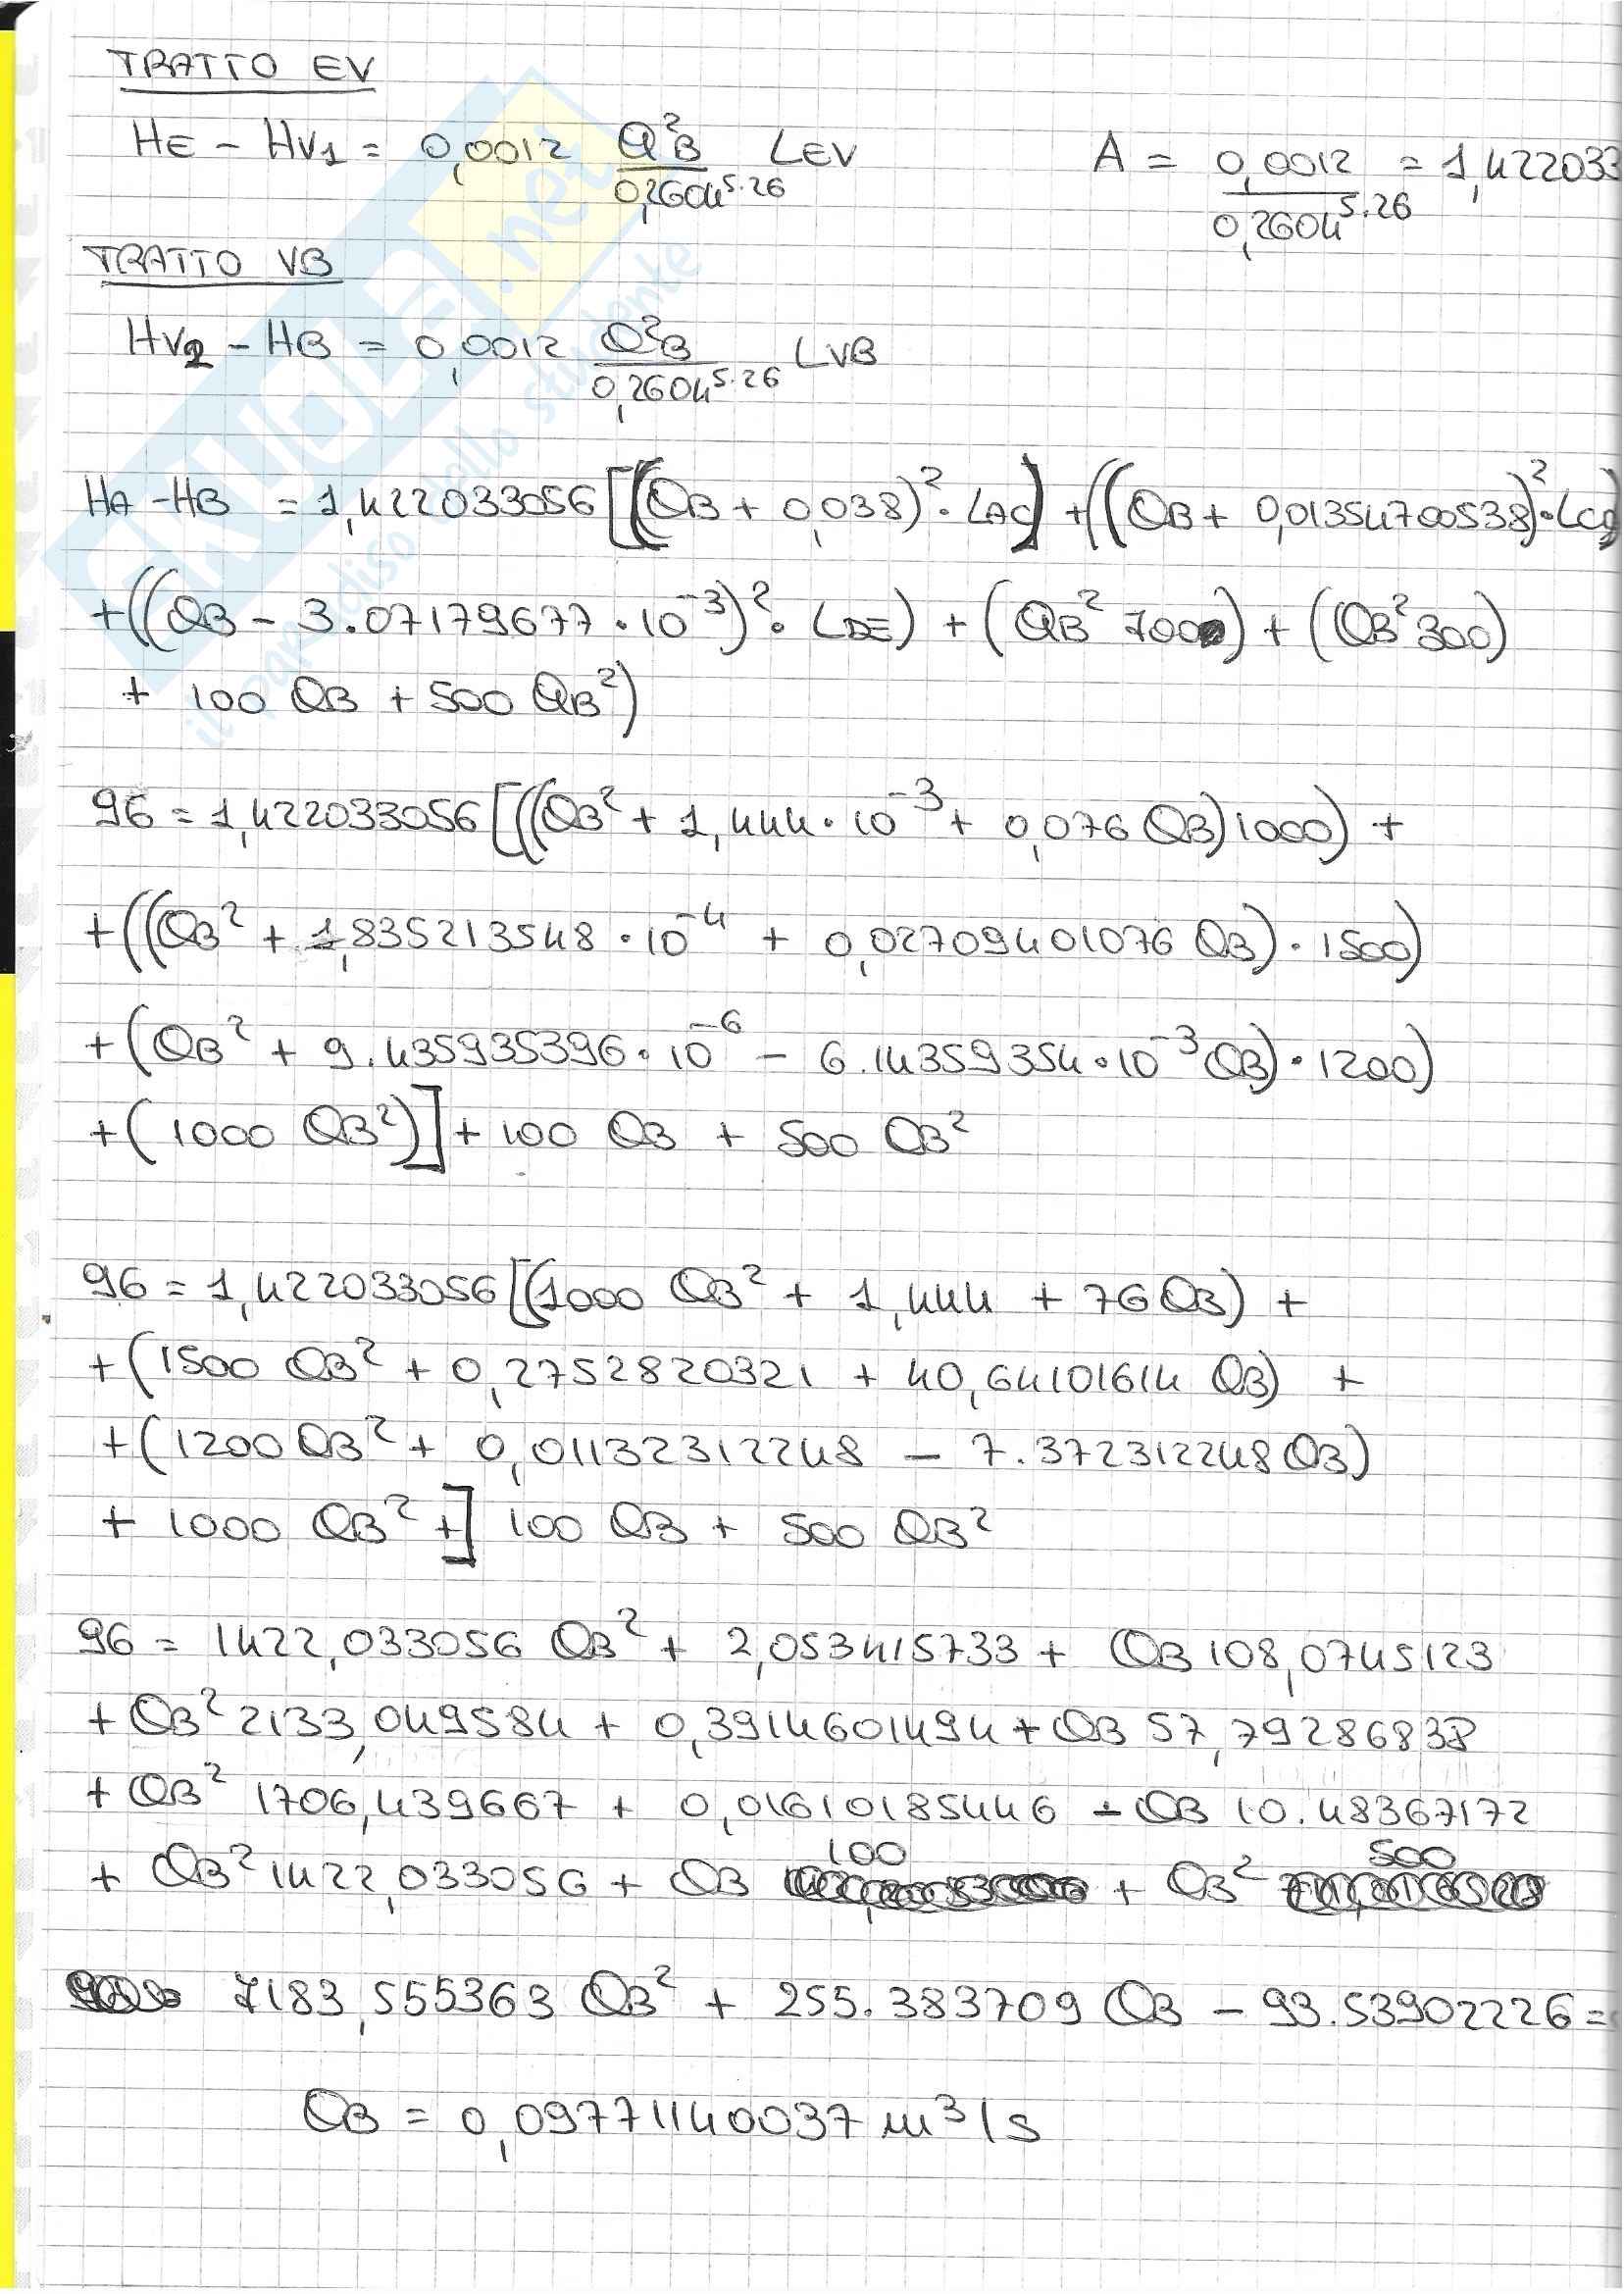 TRATTO EV
HE - HV1 = 0,0012 Q²B / 0,2604^5.26 LEV    A = 0,0012 / 0,2604^5.26 = 1,422033
TRATTO VB
HV2 - HB = 0,0012 Q²B / 0,2604^5.26 LVB
HA - HB = 1,422033056 [((QB + 0,038)² · LAC) + ((QB + 0,01354700538)² · LCD)
+ ((QB - 3.07179677 · 10⁻³)² · LDE) + (QB² 700) + (QB² 300)
+ 100 QB + 500 QB²)
96 = 1,422033056 [((QB² + 1,444 · 10⁻³ + 0,076 QB) 1000) +
+ ((QB² + 1,835213548 · 10⁻⁴ + 0,02709401076 QB) · 1500)
+ (QB² + 9.435935396 · 10⁻⁶ - 6.14359354 · 10⁻³ QB) · 1200)
+ (1000 QB²)] + 100 QB + 500 QB²
96 = 1,422033056 [(1000 QB² + 1,444 + 76 QB) +
+ (1500 QB² + 0,2752820321 + 40,64101614 QB) +
+ (1200 QB² + 0,01132312248 - 7.372312248 QB)
+ 1000 QB² +] 100 QB + 500 QB²
96 = 1422,033056 QB² + 2,053415733 + QB 108,0745123
+ QB² 2133,049584 + 0,3914601494 + QB 57,79286838
+ QB² 1706,439667 + 0,01610185446 - QB 10.48367172
+ QB² 1422,033056 + QB 100 + QB² 500
7183,555363 QB² + 255.383709 QB - 93.53902226 =
QB = 0,09771140037 m³/s
AULE.net
il paradiso dello studente